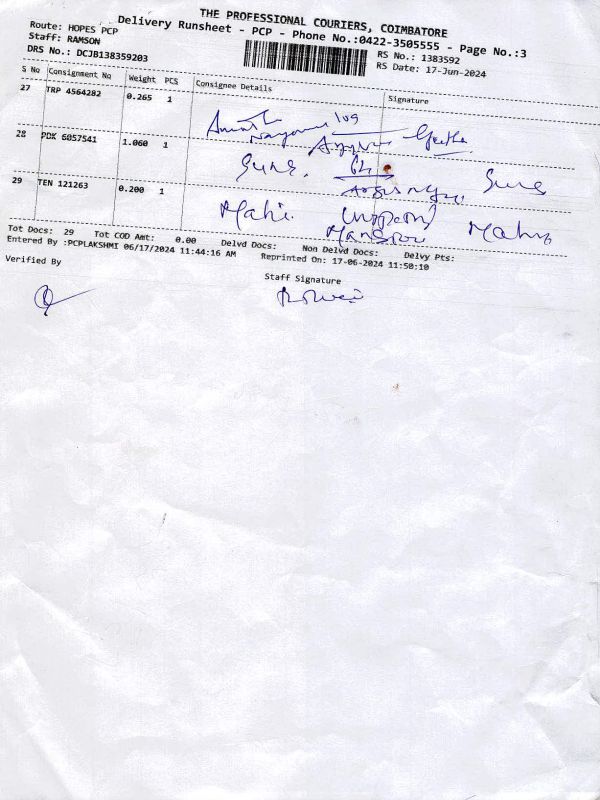 THE PROFESSIONAL COURIERS, COIMBATORE
Delivery Runsheet - PCP - Phone No.:0422-3505555 - Page No.:3
Route: HOPES PCP
Staff: RAMSON
RS No.: 1383592
DRS No.: DCJB138359203
RS Date: 17-Jun-2024
S No Consignment No Weight PCS Consignee Details Signature
27 TRP 4564282 0.265 1
109
Geetha
28 PDK 6057541 1.060 1
29 TEN 121263 0.200 1
Mahi
Tot Docs: 29 Tot COD Amt: 0.00 Delvd Docs: Non Delvd Docs: Delvy Pts:
Entered By :PCPLAKSHMI 06/17/2024 11:44:16 AM Reprinted On: 17-06-2024 11:50:10
Verified By Staff Signature